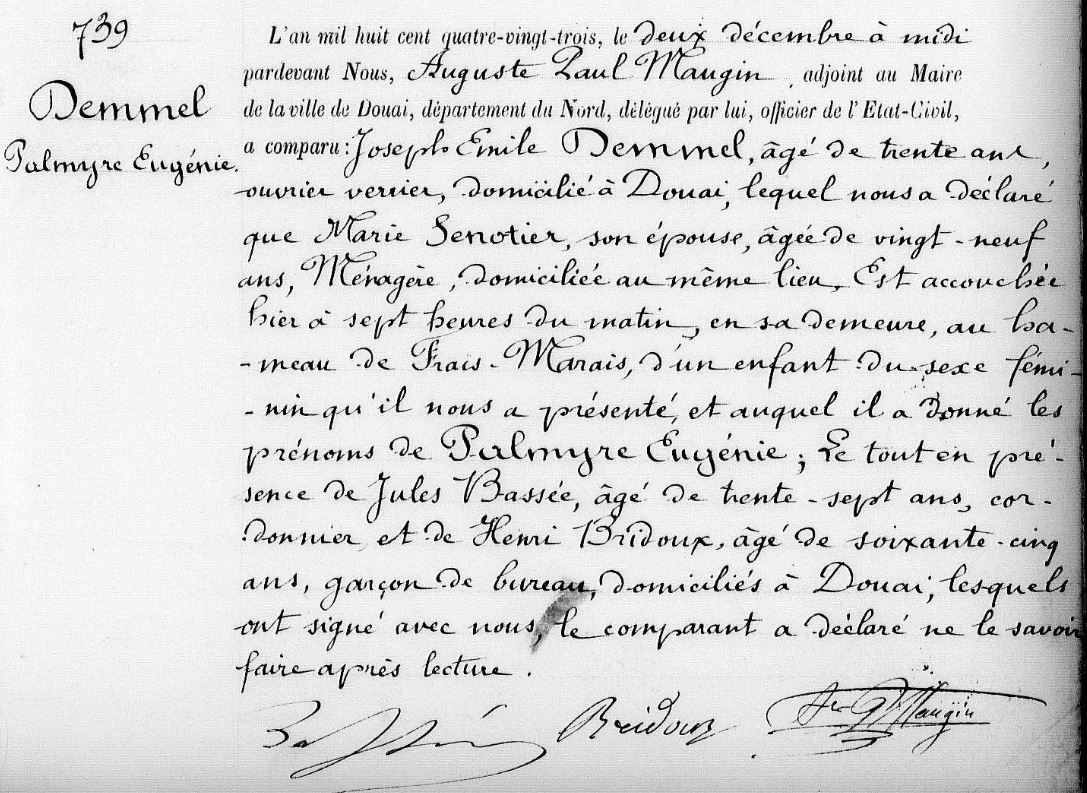 739
Demmel
Palmyre Eugénie.
L'an mil huit cent quatre-vingt-trois, le deux décembre à midi
pardevant Nous, Auguste Paul Maugin, adjoint au Maire
de la ville de Douai, département du Nord, délégué par lui, officier de l'Etat-Civil,
a comparu : Joseph Emile Demmel, âgé de trente ans,
ouvrier verrier, domicilié à Douai, lequel nous a déclaré
que Marie Senotier, son épouse, âgée de vingt-neuf
ans, Ménagère, domiciliée au même lieu, Est accouchée
hier à sept heures du matin, en sa demeure, au ha-
-meau de Frais-Marais, d'un enfant du sexe fémi-
-nin qu'il nous a présenté, et auquel il a donné les
prénoms de Palmyre Eugénie ; Le tout en pré-
sence de Jules Bassée, âgé de trente-sept ans, cor-
donnier, et de Henri Bridoux, âgé de soixante-cinq
ans, garçon de bureau, domiciliés à Douai, lesquels
ont signé avec nous, le comparant a déclaré ne le savoir
faire après lecture.
Bassée Bridoux Maugin